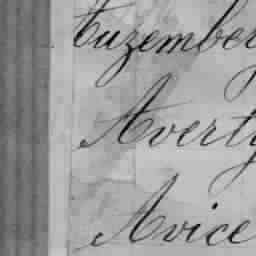 Auzember
Averty
Avice